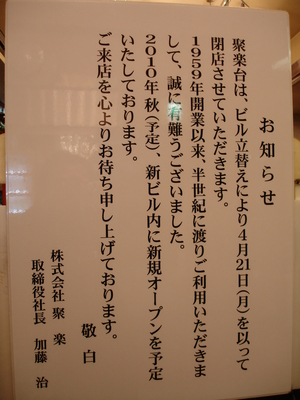 お知らせ
聚楽台は、ビル立替えにより4月21日(月)を以って
閉店させていただきます。
1959年開業以来、半世紀に渡りご利用いただきま
して、誠に有難うございました。
2010年秋(予定)、新ビル内に新規オープンを予定
いたしております。
ご来店を心よりお待ち申し上げております。
敬白
株式会社 聚楽
取締役社長 加藤 治